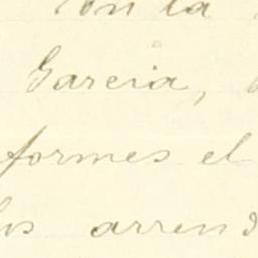 con la
Garcia,
formes el
los arrend